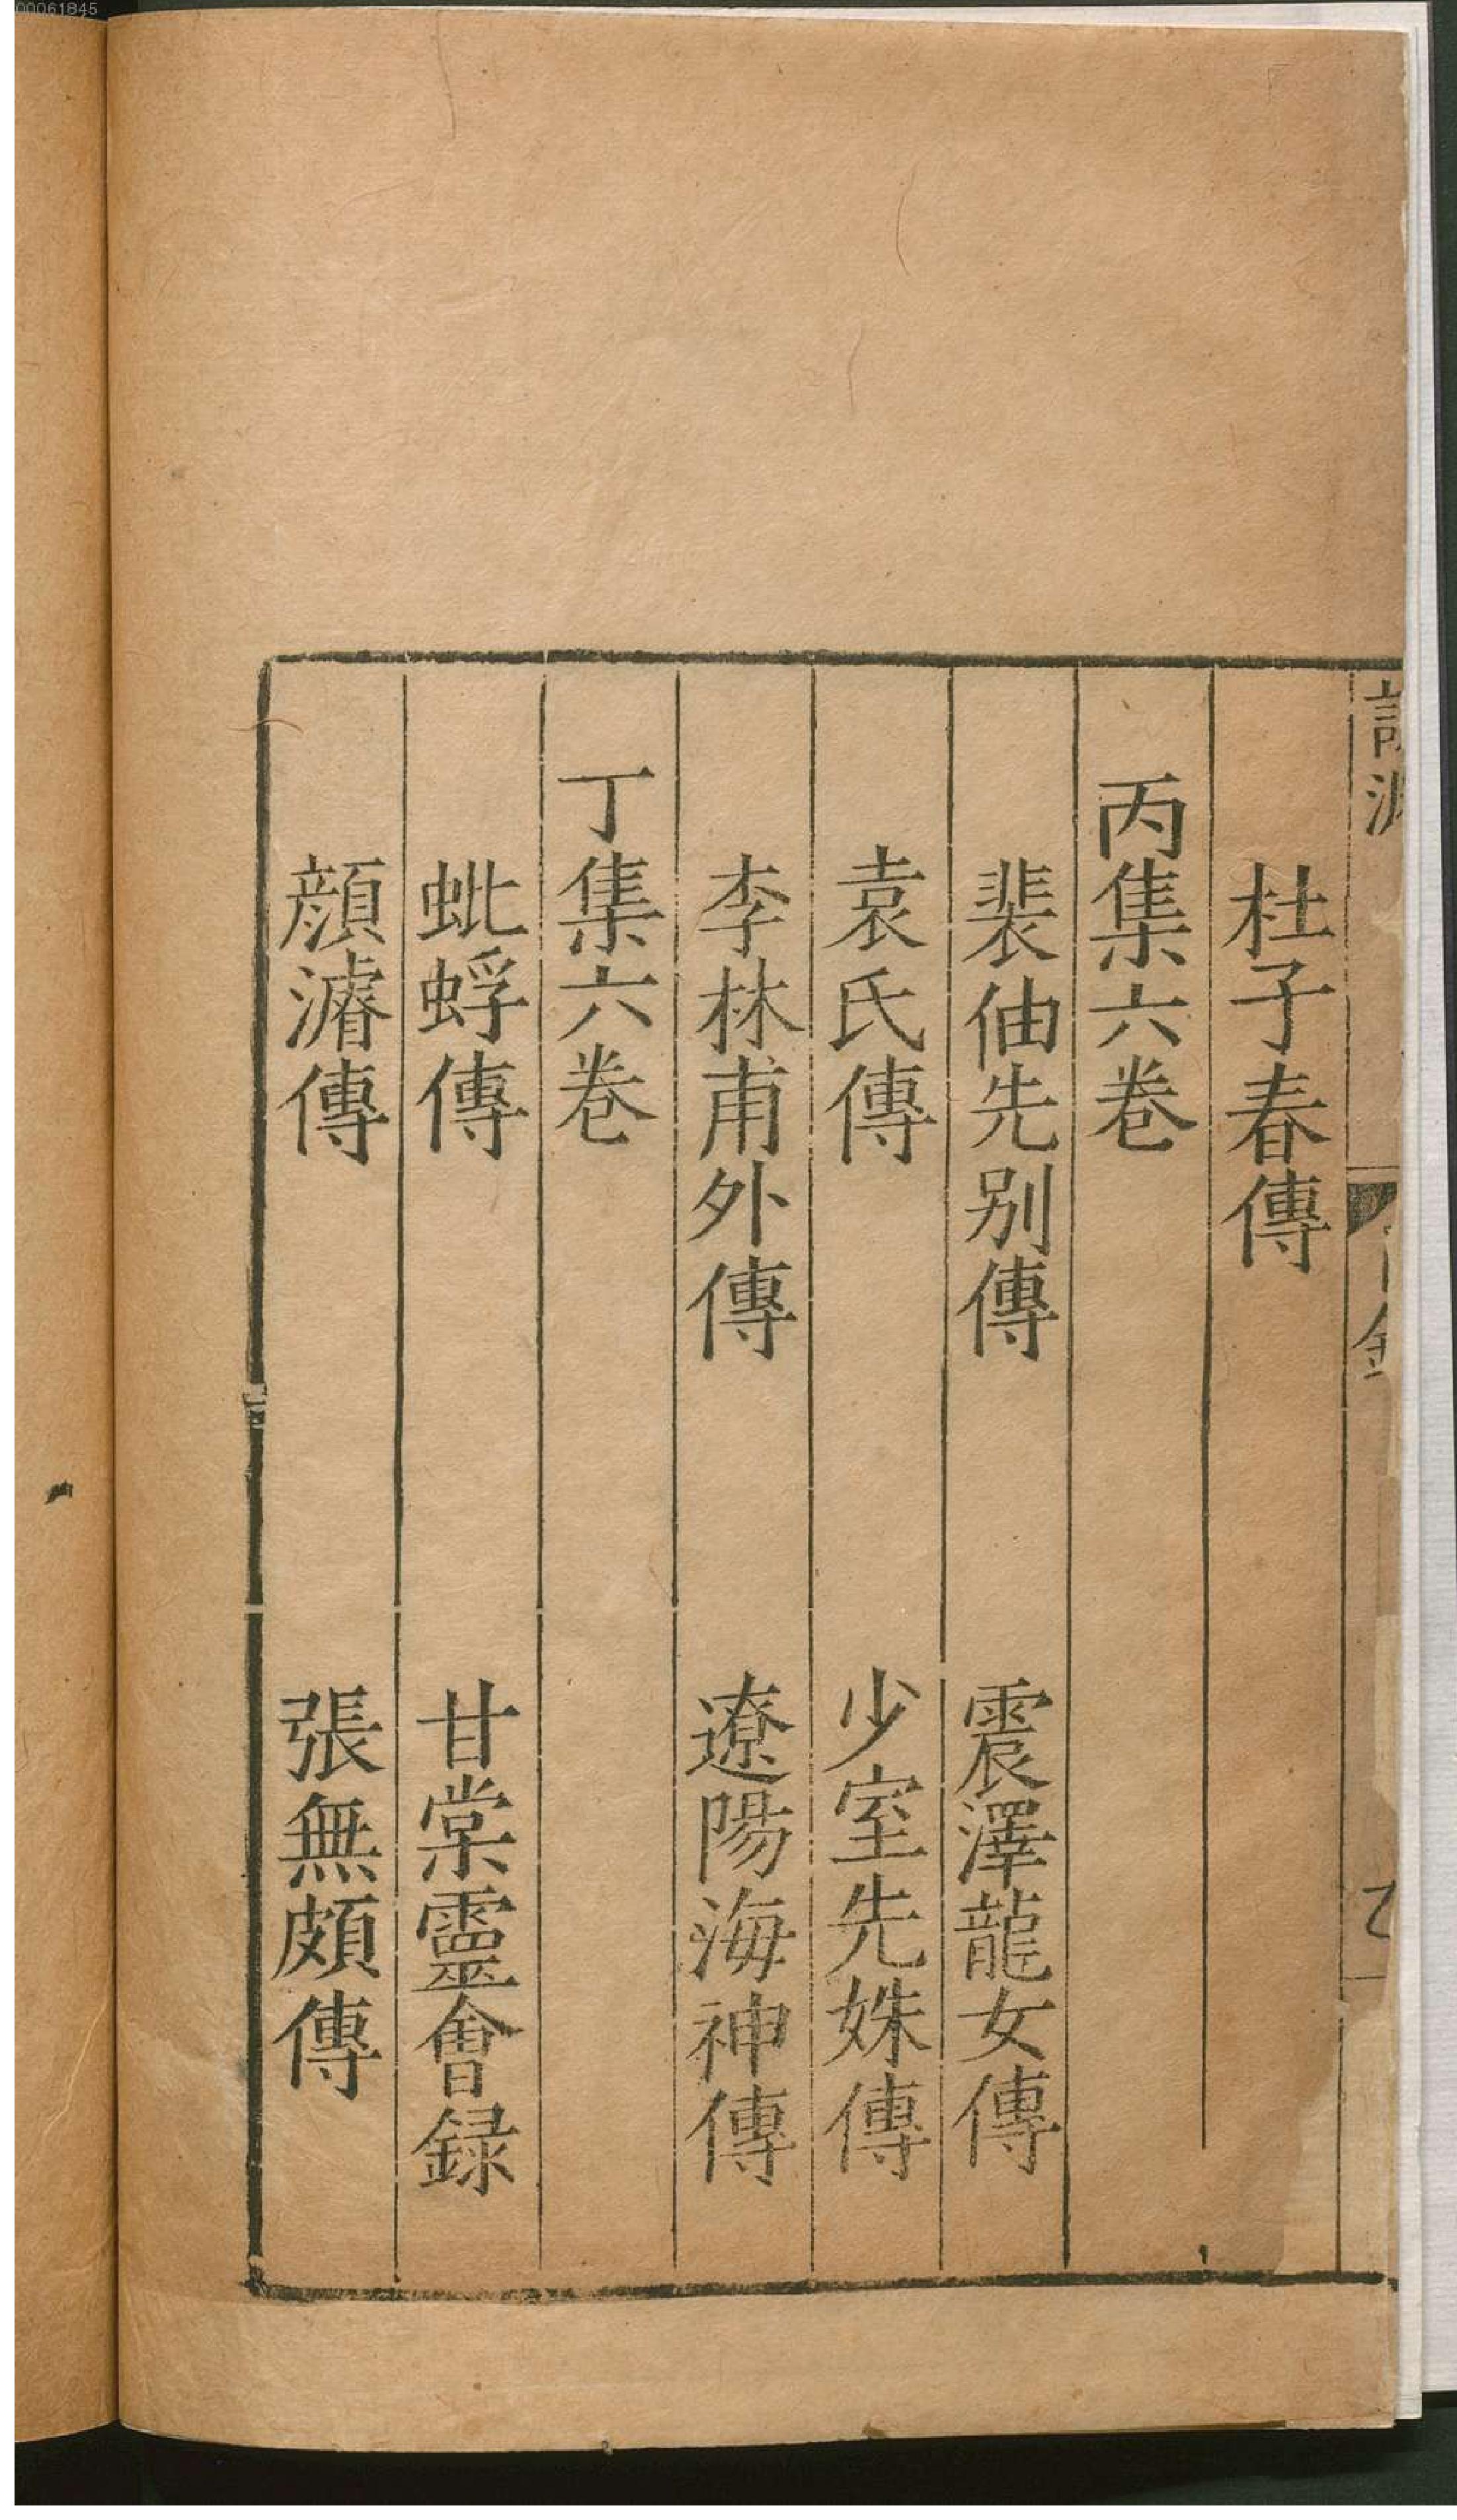 00061845
杜子春傳
丙集六卷
裴伷先别傳　震澤龍女傳
袁氏傳　少室先姝傳
李林甫外傳　遼陽海神傳
丁集六卷
蚍蜉傳　甘棠靈會録
顔濬傳　張無頗傳